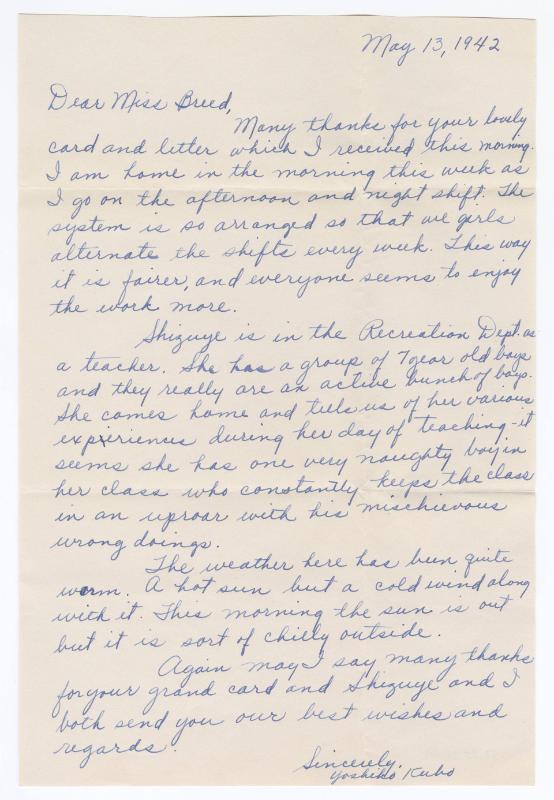 May 13, 1942
Dear Miss Breed,
Many thanks for your lovely
card and letter which I received this morning.
I am home in the morning this week as
I go on the afternoon and night shift. The
system is so arranged so that we girls
alternate the shifts every week. This way
it is fairer, and everyone seems to enjoy
the work more.
Shizuye is in the Recreation Dept. as
a teacher. She has a group of 7 year old boys
and they really are an active bunch of boys.
She comes home and tells us of her various
experiences during her day of teaching - it
seems she has one very naughty boy in
her class who constantly keeps the class
in an uproar with his mischievous
wrong doings.
The weather here has been quite
warm. A hot sun but a cold wind along
with it. This morning the sun is out
but it is sort of chilly outside.
Again may I say many thanks
for your grand card and Shizuye and I
both send you our best wishes and
regards.
Sincerely,
Yoshiko Kubo